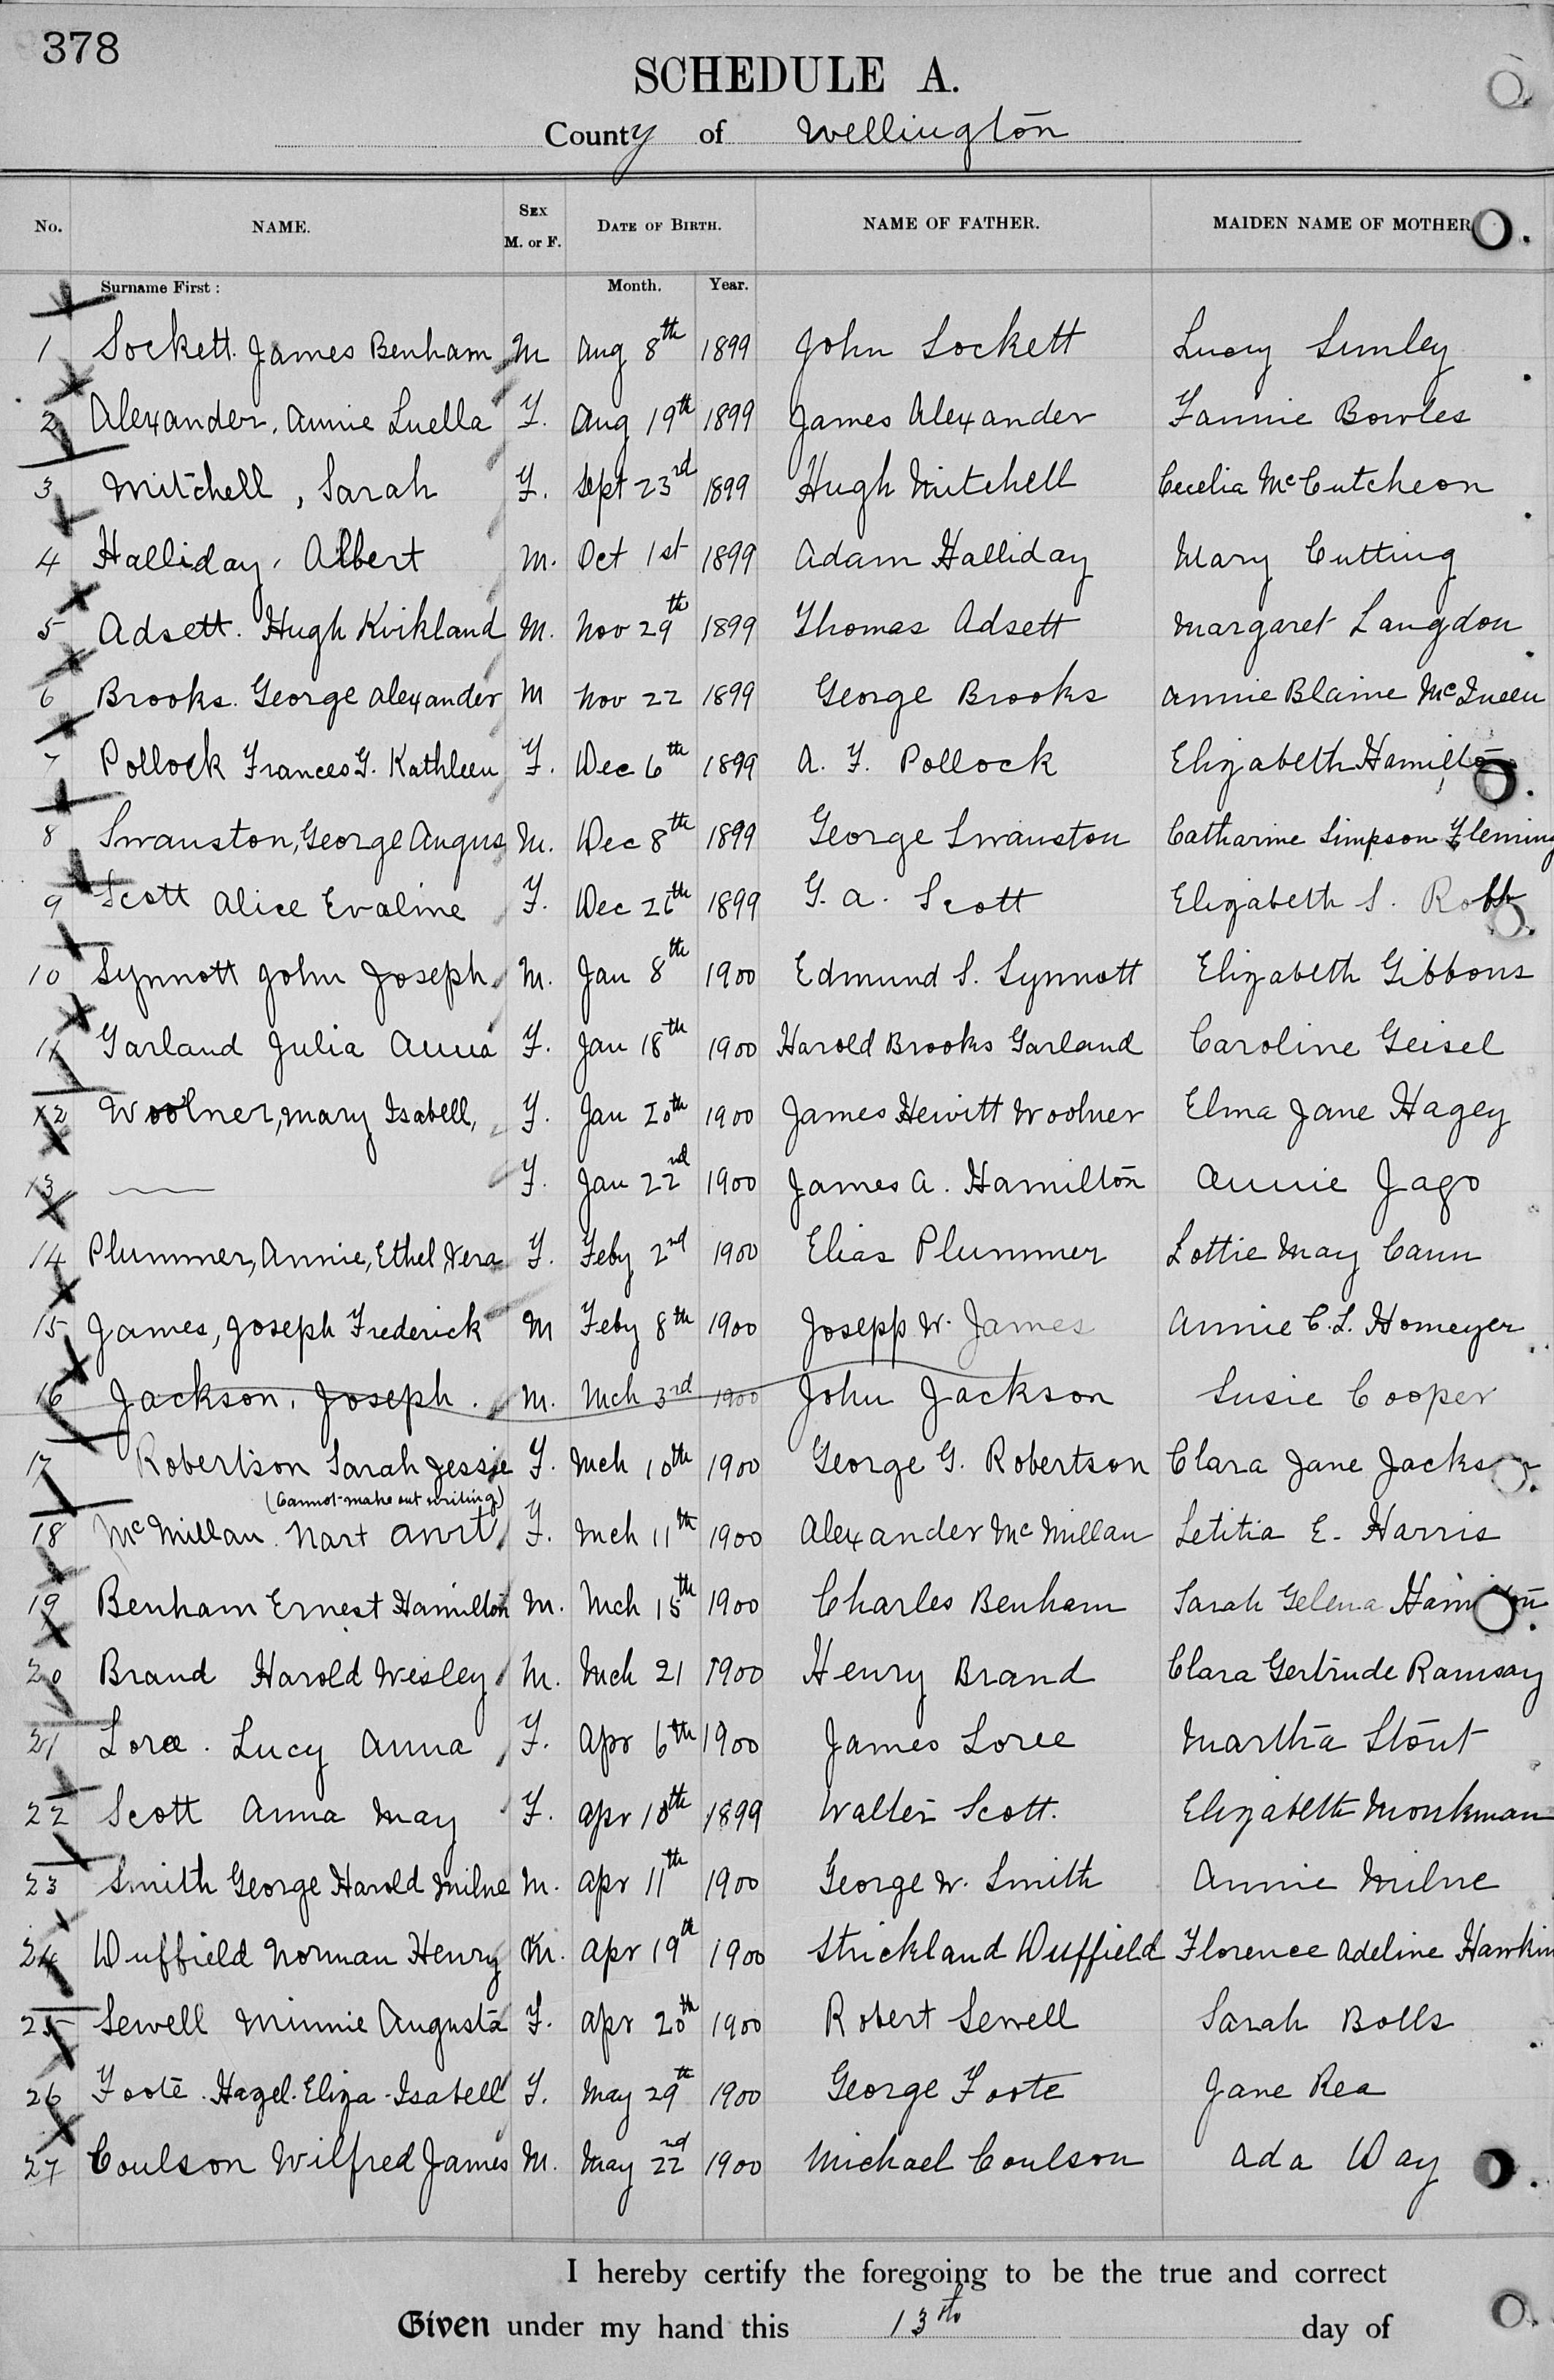 378
SCHEDULE A.
County of Wellington
No. NAME. SEX M. or F. DATE OF BIRTH. NAME OF FATHER. MAIDEN NAME OF MOTHER
Surname First: Month. Year.
1 Sockett. James Benham M Aug 8th 1899 John Sockett Lucy
2 Alexander, Annie Luella F. Aug 19th 1899 James Alexander Fannie Bowles
3 Mitchell, Sarah F. Sept 23rd 1899 Hugh Mitchell Cecelia McCutcheon
4 Halliday, Albert M. Oct 1st 1899 Adam Halliday Mary Cutting
5 Adsett. Hugh Kirkland M. Nov 29th 1899 Thomas Adsett Margaret Langdon
6 Brooks. George Alexander M Nov 22 1899 George Brooks Annie Blaine McQueen
7 Pollock Frances G. Kathleen F. Dec 6th 1899 A. F. Pollock Elizabeth Hamilton
8 Swanston, George Angus M. Dec 8th 1899 George Swanston Catharine Simpson Fleming
9 Scott Alice Evaline F. Dec 26th 1899 G. A. Scott Elizabeth S. Robb
10 Synnott John Joseph M. Jan 8th 1900 Edmund S. Synnott Elizabeth Gibbons
11 Garland Julia Anna F. Jan 18th 1900 Harold Brooks Garland Caroline Geisel
12 Woolner, Mary Isabell, F. Jan 20th 1900 James Hewitt Woolner Elma Jane Hagey
13 — F. Jan 22nd 1900 James A. Hamilton Annie Jago
14 Plummer, Annie, Ethel, Vera F. Feby 2nd 1900 Elias Plummer Lottie May Cann
15 James, Joseph Frederick M Feby 8th 1900 Josepp W. James Annie C. L. Homeyer
16 Jackson, Joseph. M. Mch 3rd 1900 John Jackson Susie Cooper
17 Robertson Sarah Jessie F. Mch 10th 1900 George G. Robertson Clara Jane Jackson
(Cannot make out writing)
18 McMillan. F. Mch 11th 1900 Alexander McMillan Letitia E. Harris
19 Benham Ernest Hamilton M. Mch 15th 1900 Charles Benham Sarah Gelena Hamilton
20 Brand Harold Wesley M. Mch 21 1900 Henry Brand Clara Gertrude Ramsay
21 Loree. Lucy Anna F. Apr 6th 1900 James Loree Martha Stout
22 Scott Anna May F. Apr 10th 1899 Walter Scott. Elizabeth Monkman
23 Smith George Harold Milne M. Apr 11th 1900 George W. Smith Annie Milne
24 Duffield Norman Henry M. Apr 19th 1900 Strickland Duffield Florence Adeline Hawkin
25 Sewell Minnie Augusta F. Apr 20th 1900 Robert Sewell Sarah Bolls
26 Foote. Hazel. Eliza-Isabell F. May 29th 1900 George Foote Jane Rea
27 Coulson Wilfred James M. May 22nd 1900 Michael Coulson Ada Day
I hereby certify the foregoing to be the true and correct
Given under my hand this 13th day of